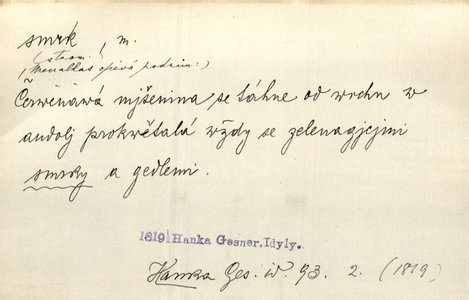 smrk, m.
(strom.)
(Menalkas opěvá podzim:)
Červenawá mjšenina se táhne od wrchu w
audolj prokwětalá wždy se zelenagjcjmi
smrky a gedlemi.
1819 Hanka Gesner. Idyly.
Hanka Ges. id. 93. 2. (1819)